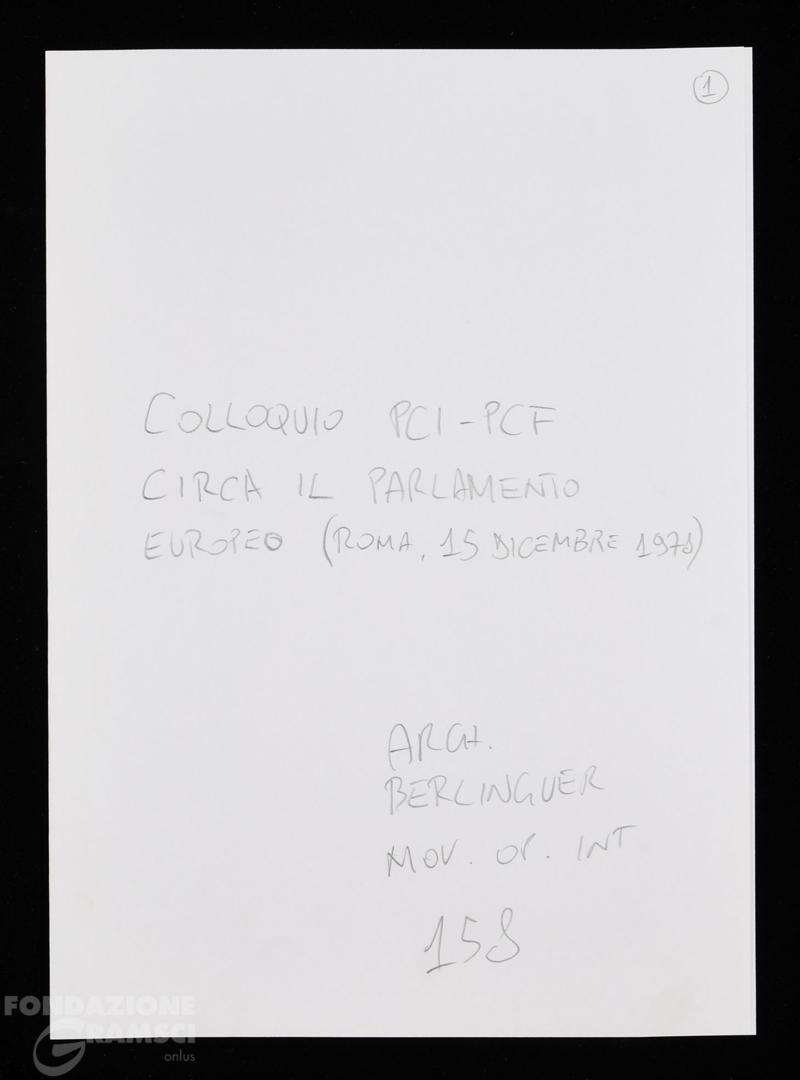 1
COLLOQUIO PCI-PCF
CIRCA IL PARLAMENTO
EUROPEO (ROMA, 15 DICEMBRE 1978)
ARCH.
BERLINGUER
MOV. OP. INT
158
FONDAZIONE
GRAMSCI
onlus